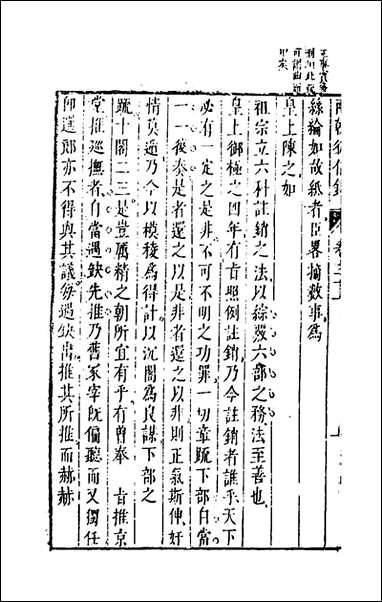 兩朝從信錄 卷三十三
絲綸如故紙者臣畧摘數事爲
皇上陳之如
祖宗立六科註銷之法以綜覈六部之務法至善也
皇上御極之四年有旨照例註銷乃今註銷者誰乎天下
必有一定之是非不可不明之功罪一切章疏下部自當
一一復奏是者還之以是非者還之以非則正氣斯伸奸
情莫遁乃今以模稜爲得計以沉閣爲良謀下部之
疏十閣二三是豈厲精之朝所宜有乎有曾奉 旨推京
堂推巡撫者自當遇缺先推乃舊冢宰旣偏聽而又獨任
卽選郎亦不得與其議每遇缺出推其所推而赫赫